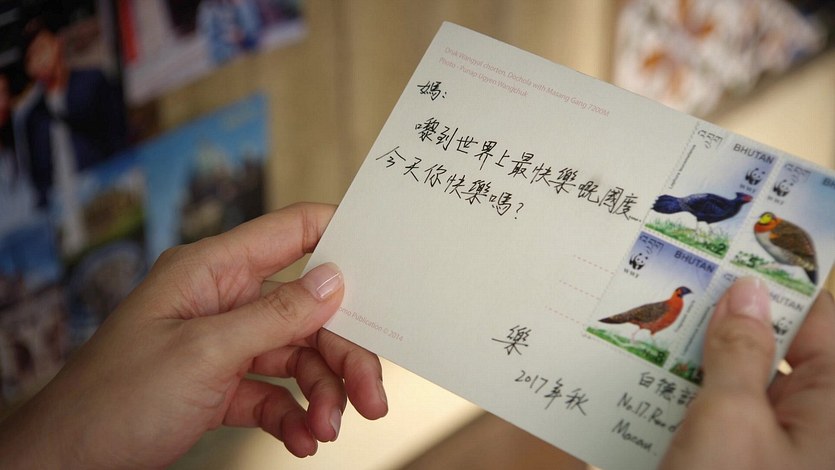 Druk Wangyal chorten, Dochula with Masang Gang 7200M
Photo - Punap Ugyen Wangchuk
媽：
嚟到世界上最快樂嘅國度
今天你快樂嗎？
樂
2017年秋
BHUTAN
WWF
BHUTAN
WWF
BHUTAN
WWF
白德
No.17, Rua d
Macau.
Publication © 2014